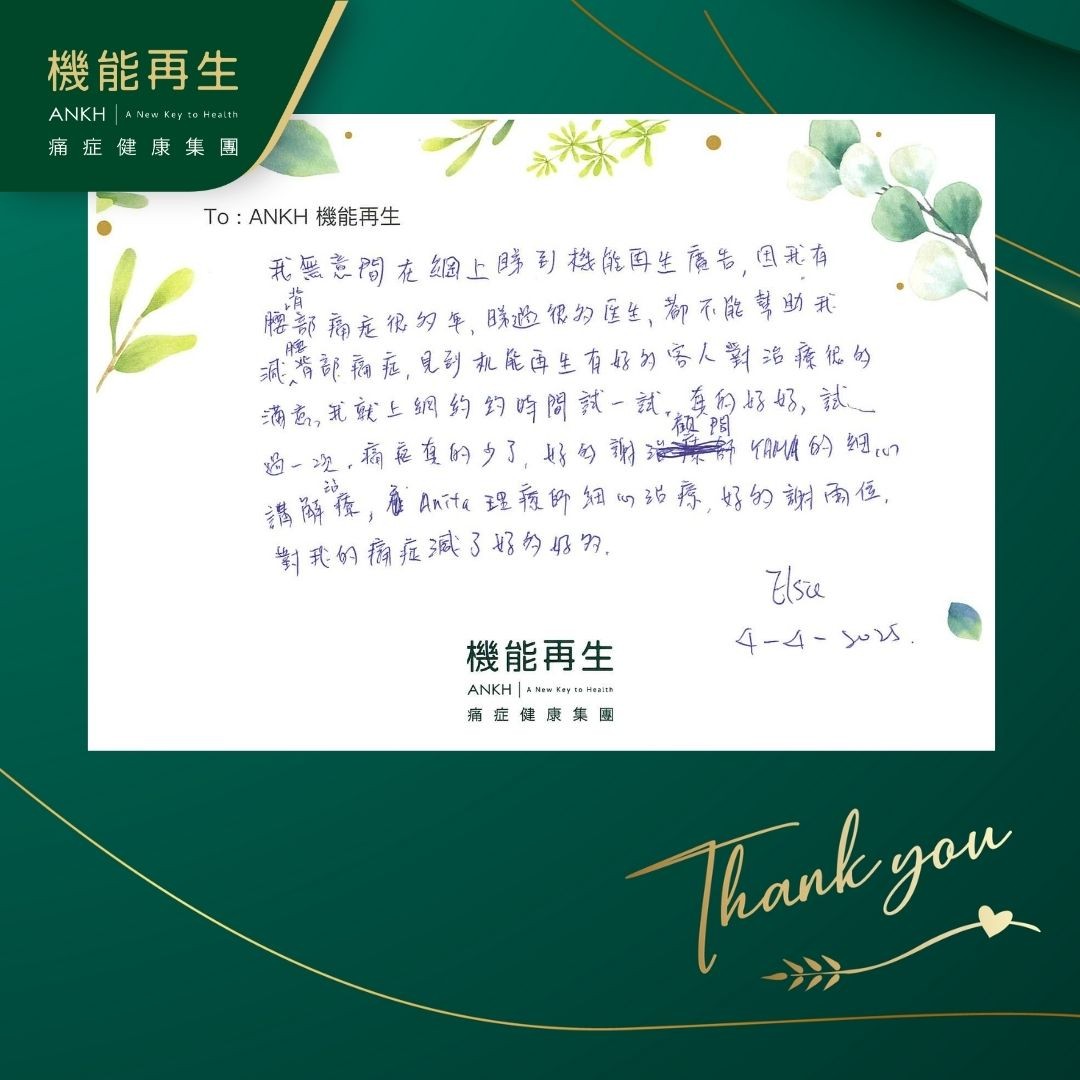 機能再生
ANKH | A New Key to Health
痛症健康集團
To : ANKH 機能再生
我無意間在網上睇到機能再生廣告,因我有
腰背部痛症很多年,睇過很多医生,都不能幫助我
減腰背部痛症,見到机能再生有好多客人對治療很多
滿意。我就上網約約時間試一試。真的好好,試
過一次,痛症真的少了,好多謝顧問YAMA的細心
講解治療,Anita理療師細心治療,好多謝兩位,
對我的痛症減了好多好多.
Elsie
4-4-2025.
機能再生
ANKH | A New Key to Health
痛症健康集團
Thank you